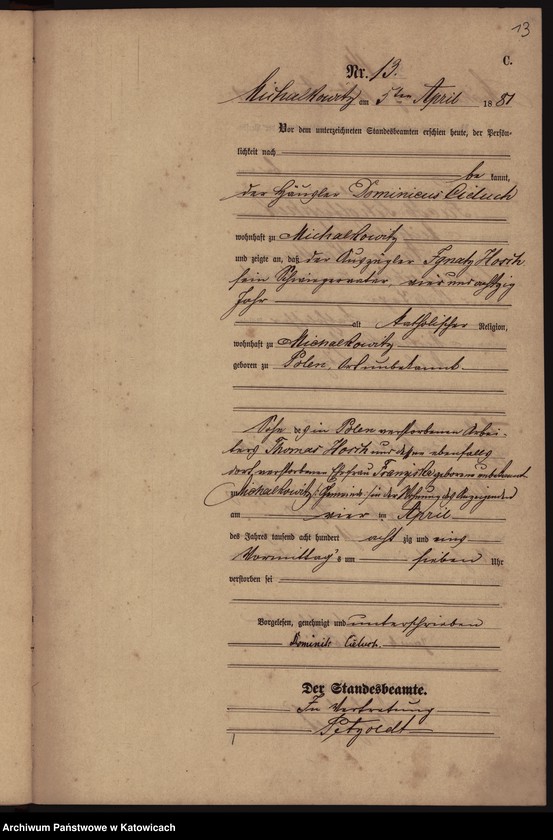 13
C.
Nr. 13.
Michalkowitz am 5ten April 1881
Vor dem unterzeichneten Standesbeamten erschien heute, der Persön-
lichkeit nach
be kannt,
der Häusler Dominicus Cieluch
wohnhaft zu Michalkowitz
und zeigte an, daß der Auszügler Ignatz Hosch
sein Schwiegervater, vier und achtzig
Jahr
alt Katholischer Religion,
wohnhaft zu Michalkowitz
geboren zu Polen, Ort unbekannt.
Sohn des in Polen verstorbenen Arbei-
ters Thomas Hosch und dessen ebenfalls
dort verstorbenen Ehefrau Franziska geborene unbekannt
zu Michalkowitz Gemeinde in der Wohnung des Anzeigenden
am vier ten April
des Jahres tausend acht hundert acht zig und eins
Vormittags um sieben Uhr
verstorben sei
Vorgelesen, genehmigt und unterschrieben
Dominik
Der Standesbeamte.
In Vertretung
Petzoldt
Archiwum Państwowe w Katowicach